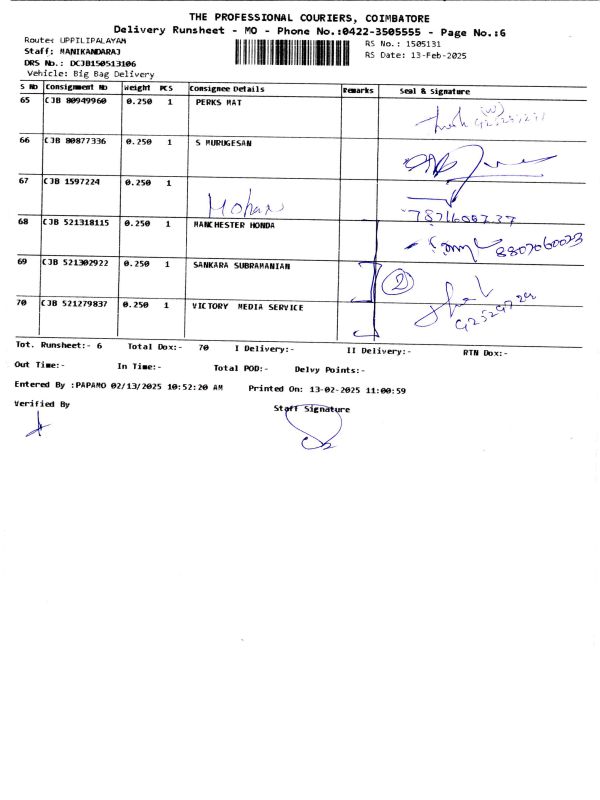 THE PROFESSIONAL COURIERS, COIMBATORE
Delivery Runsheet - MO - Phone No.:0422-3505555 - Page No.:6
Route: UPPILIPALAYAM
RS No.: 1505131
Staff: MANIKANDARAJ
RS Date: 13-Feb-2025
DRS No.: DCJB150513106
Vehicle: Big Bag Delivery
S No Consignment No Weight PCS Consignee Details Remarks Seal & Signature
65 CJB 80949960 0.250 1 PERKS MAT
(W)
66 CJB 80877336 0.250 1 S MURUGESAN
67 CJB 1597224 0.250 1
Mohan
68 CJB 521318115 0.250 1 MANCHESTER HONDA
8807060023
69 CJB 521302922 0.250 1 SANKARA SUBRAMANIAN
2
70 CJB 521279837 0.250 1 VICTORY MEDIA SERVICE
Tot. Runsheet:- 6 Total Dox:- 70 I Delivery:- II Delivery:- RTN Dox:-
Out Time:- In Time:- Total POD:- Delvy Points:-
Entered By :PAPAMO 02/13/2025 10:52:20 AM Printed On: 13-02-2025 11:00:59
Verified By Staff Signature